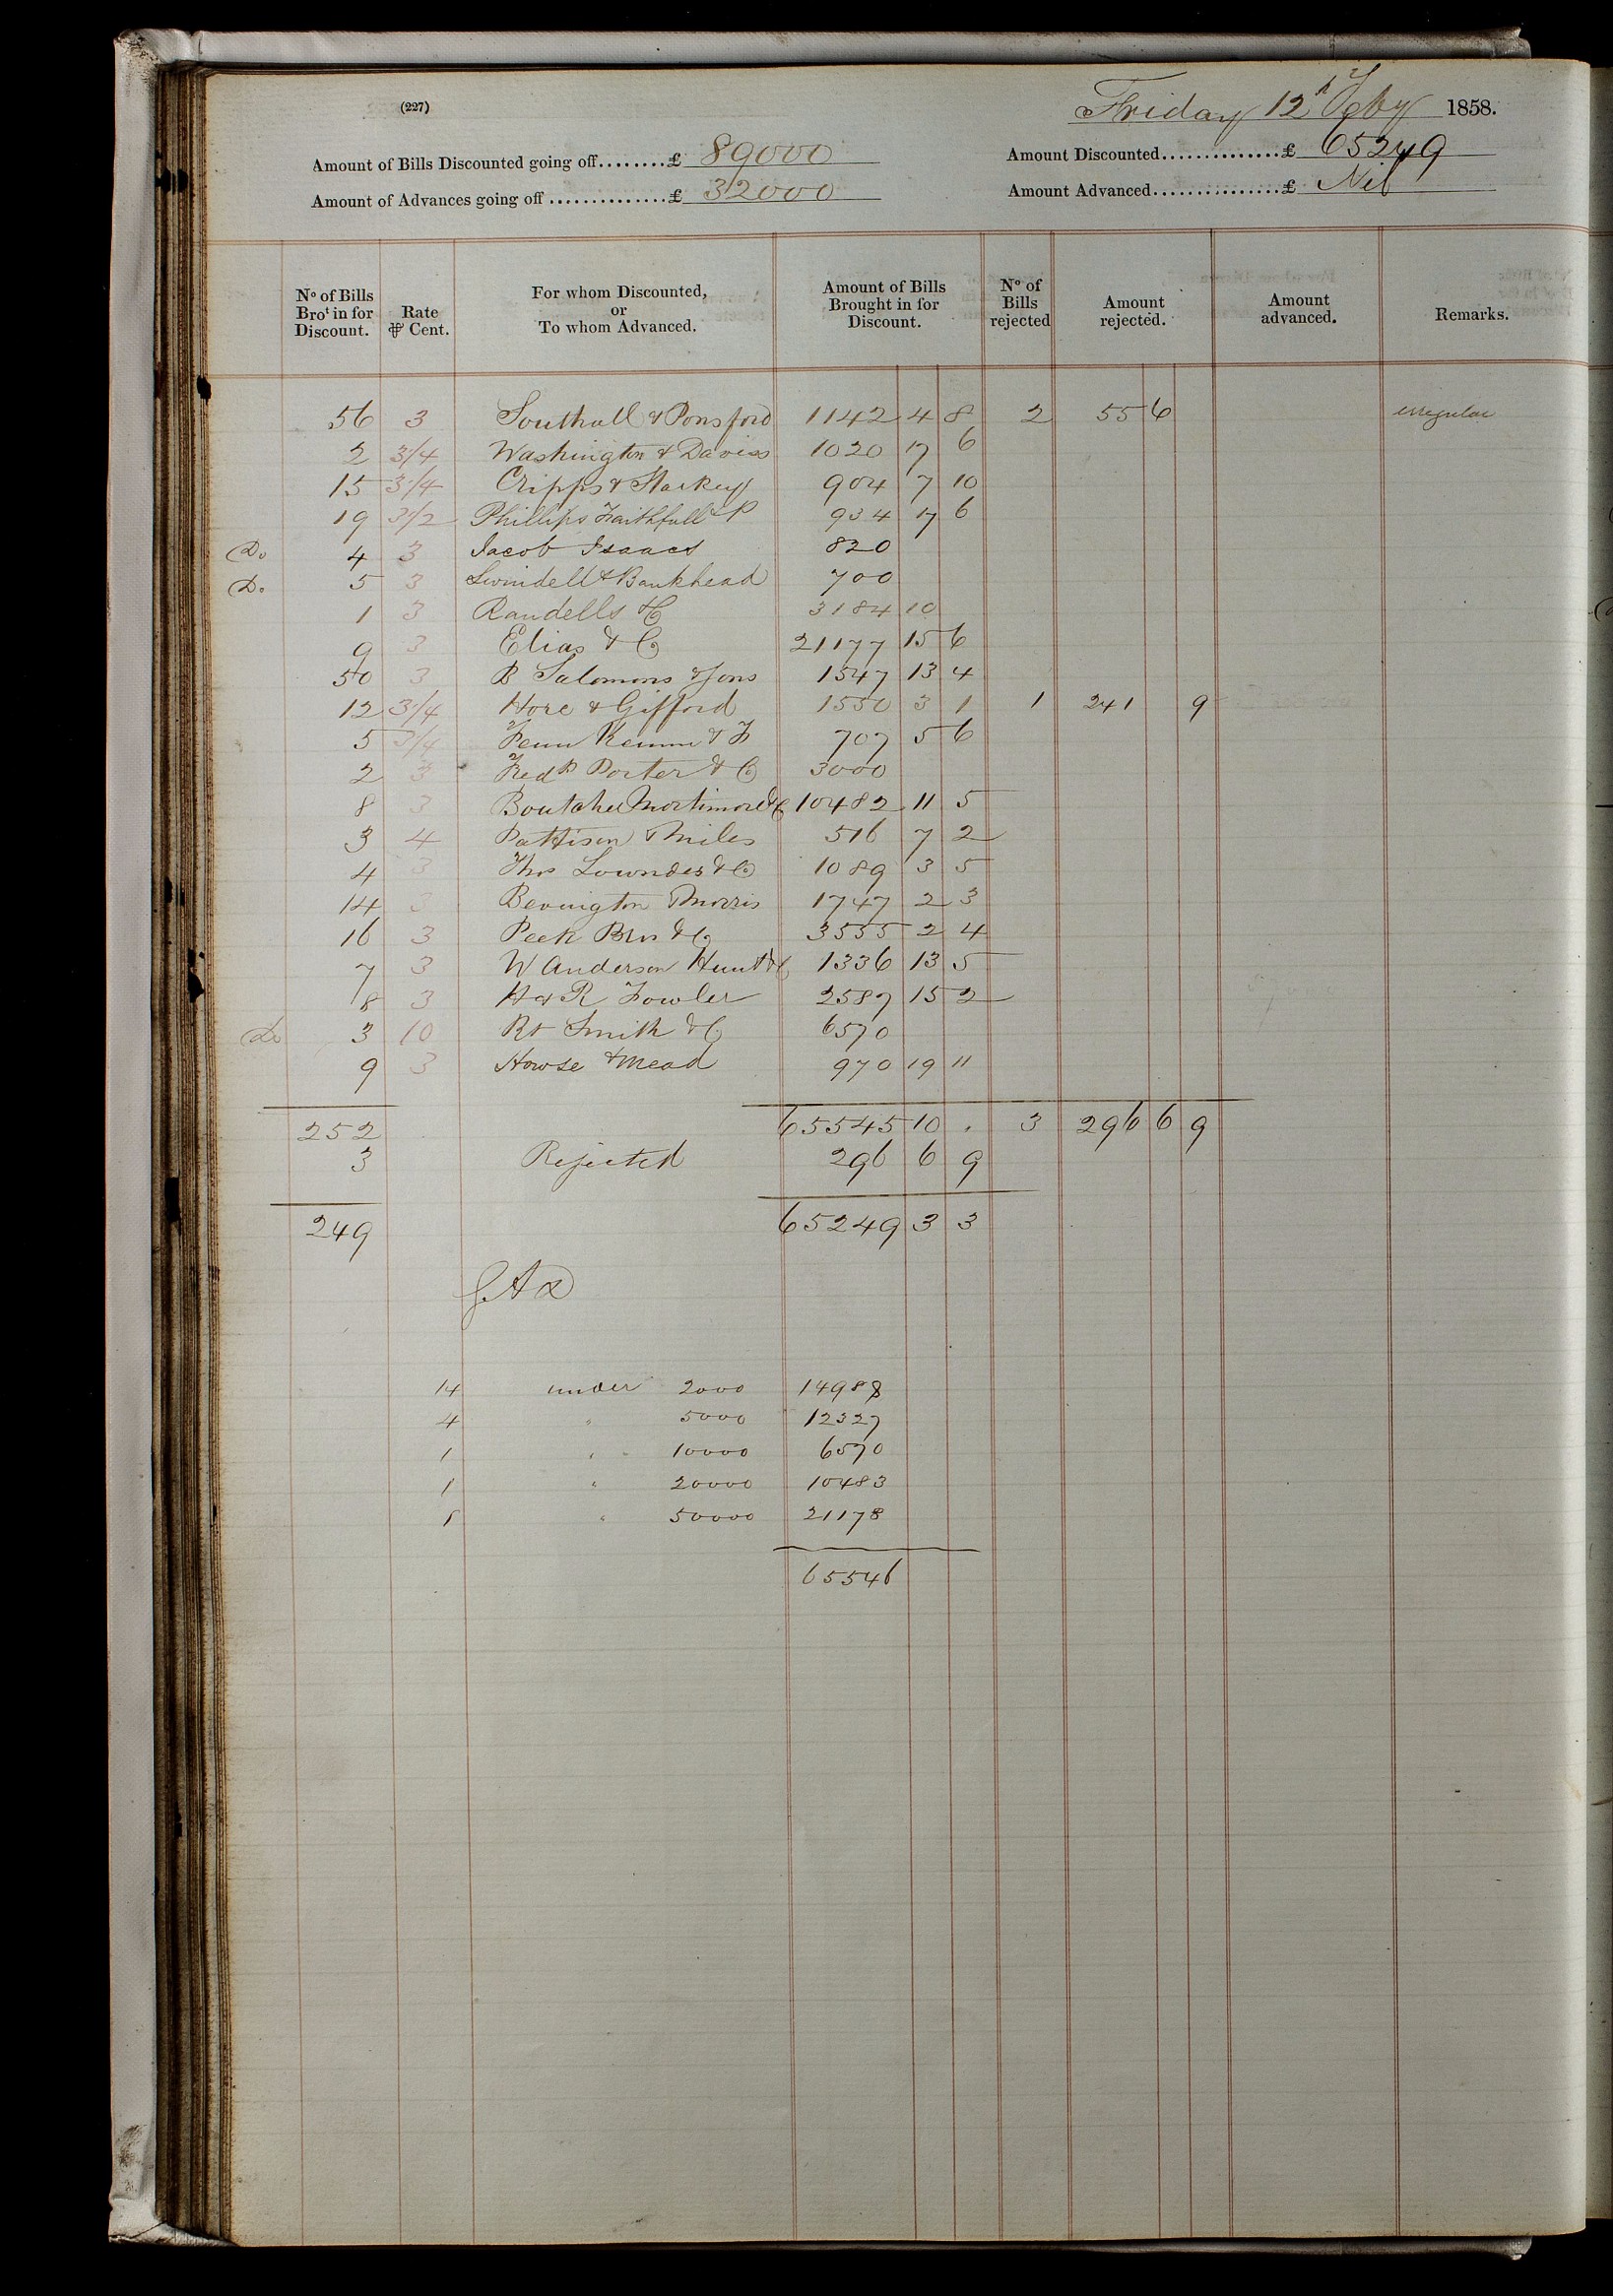 (227)
Friday 12th Feby 1858.
Amount of Bills Discounted going off........£ 89000
Amount Discounted..............£ 65249
Amount of Advances going off ..............£ 32000
Amount Advanced................£ Nil
No of Bills Brot in for Discount. Rate ⅌ Cent. For whom Discounted, or To whom Advanced. Amount of Bills Brought in for Discount. No of Bills rejected Amount rejected. Amount advanced. Remarks.
56 3 Southall & Ponsford 1142 4 8 2 55 6 irregular
2 3/4 Washington & Davies 1020 17 6
15 3/4 Cripps & Starkey 904 7 10
19 3/2 Phillips Faithfull & P 934 17 6
Do 4 3 Jacob Isaacs 820
Do 5 3 Swindell & Bankhead 700
1 3 Randells & Co 3184 10
9 3 Elias & Co 21177 15 6
50 3 B Salomons & Sons 1547 13 4
12 3/4 Hore & Gifford 1550 3 1 1 241 9
5 3/4 Fenn Kemm & F 707 5 6
2 3 Fredk Porter & Co 3000
8 3 Boutcher Mortimore & C 10482 11 5
3 4 Pattison & Miles 516 7 2
4 3 Thos Lowndes & Co 1089 3 5
14 3 Bevington & Morris 1747 2 3
16 3 Peek Bros & Co 3555 2 4
7 3 W Anderson Hunt & C 1336 13 5
8 3 H & R Fowler 2587 15 2
Do 3 10 Rt Smith & Co 6570
9 3 Howse & Mead 970 19 11
252 65545 10 . 3 296 6 9
3 Rejected 296 6 9
249 65249 3 3
14 under 2000 14988
4 " 5000 12327
1 " 10000 6570
1 " 20000 10483
1 " 50000 21178
65546